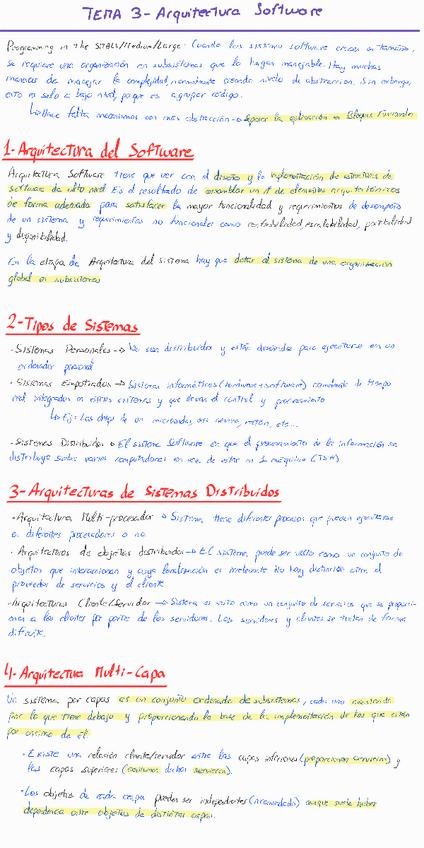 TEMA 3 - Arquitectura Software
Programming in the Small/Medium/Large: Cuando los sistemas software crecen en tamaño,
se requiere una organización en subsistemas que lo hagan manejable. Hay muchas
maneras de manejar la complejidad, normalmente creando niveles de abstracción. Sin embargo,
esto es solo a bajo nivel, porque es agrupar código.
Hace falta mecanismos con más abstracción → Separar la aplicación en Bloques Funcionales
1-Arquitectura del Software
Arquitectura Software tiene que ver con el diseño y la implementación de estructuras de
software de alto nivel. Es el resultado de ensamblar un nº de elementos arquitectónicos
de forma adecuada para satisfacer la mayor funcionalidad y requerimientos de desempeño
de un sistema y requerimientos no funcionales como confiabilidad, escalabilidad, portabilidad
y disponibilidad.
En la etapa de Arquitectura del sistema hay que dotar al sistema de una organización
global en subsistemas
2-Tipos de Sistemas
·Sistemas Personales → No son distribuidos y están diseñados para ejecutarse en un
ordenador personal
·Sistemas Empotrados → Sistema informáticos (hardware+software) de tiempo
real integrados en y que llevan el control y procesamiento
Ej: Los chips de un microondas, etc...
·Sistemas Distribuidos → El sistema Software en que el procesamiento de la información se
distribuye sobre varias computadoras en vez de estar en 1 máquina
3-Arquitecturas de Sistemas Distribuidos
·Arquitectura Multi-procesador → Sistema tiene diferentes procesos que pueden ejecutarse
en diferentes procesadores o no.
·Arquitecturas de objetos distribuidos → El sistema puede ser visto como un conjunto de
objetos que interaccionan y cuya localización es irrelevante. No hay distinción entre el
proveedor de servicios y el cliente.
·Arquitecturas Cliente/Servidor → Sistema es visto como un conjunto de servicios que se proporcio-
nan a los clientes por parte de los servidores. Los servidores y clientes se tratan de forma
diferente.
4-Arquitectura Multi-Capa
Un sistema por capas es un conjunto ordenado de subsistemas, cada uno construido
por lo que tiene debajo y proporcionando la base de la implementación de los que están
por encima de él.
·Existe una relación cliente/servidor entre las capas inferiores (proporcionan servicios) y
las capas superiores (consumen dichos servicios).
·Los objetos de cada capa pueden ser independientes (recomendado) aunque suele haber
dependencia entre objetos de distintas capas.